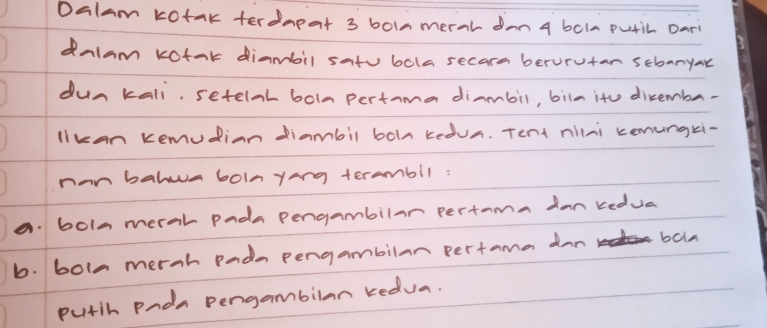 Dalam kotak terdapat 3 bola merah dan 4 bola putih Dari
dalam kotak diambil satu bola secara berurutan sebanyak
dua kali. setelah bola pertama diambil, bila itu dikemba-
likan kemudian diambil bola kedua. Tent nilai kemungki-
nan bahwa bola yang terambil :
a. bola merah pada pengambilan pertama dan kedua
b. bola merah pada pengambilan pertama dan bola
putih pada pengambilan kedua.